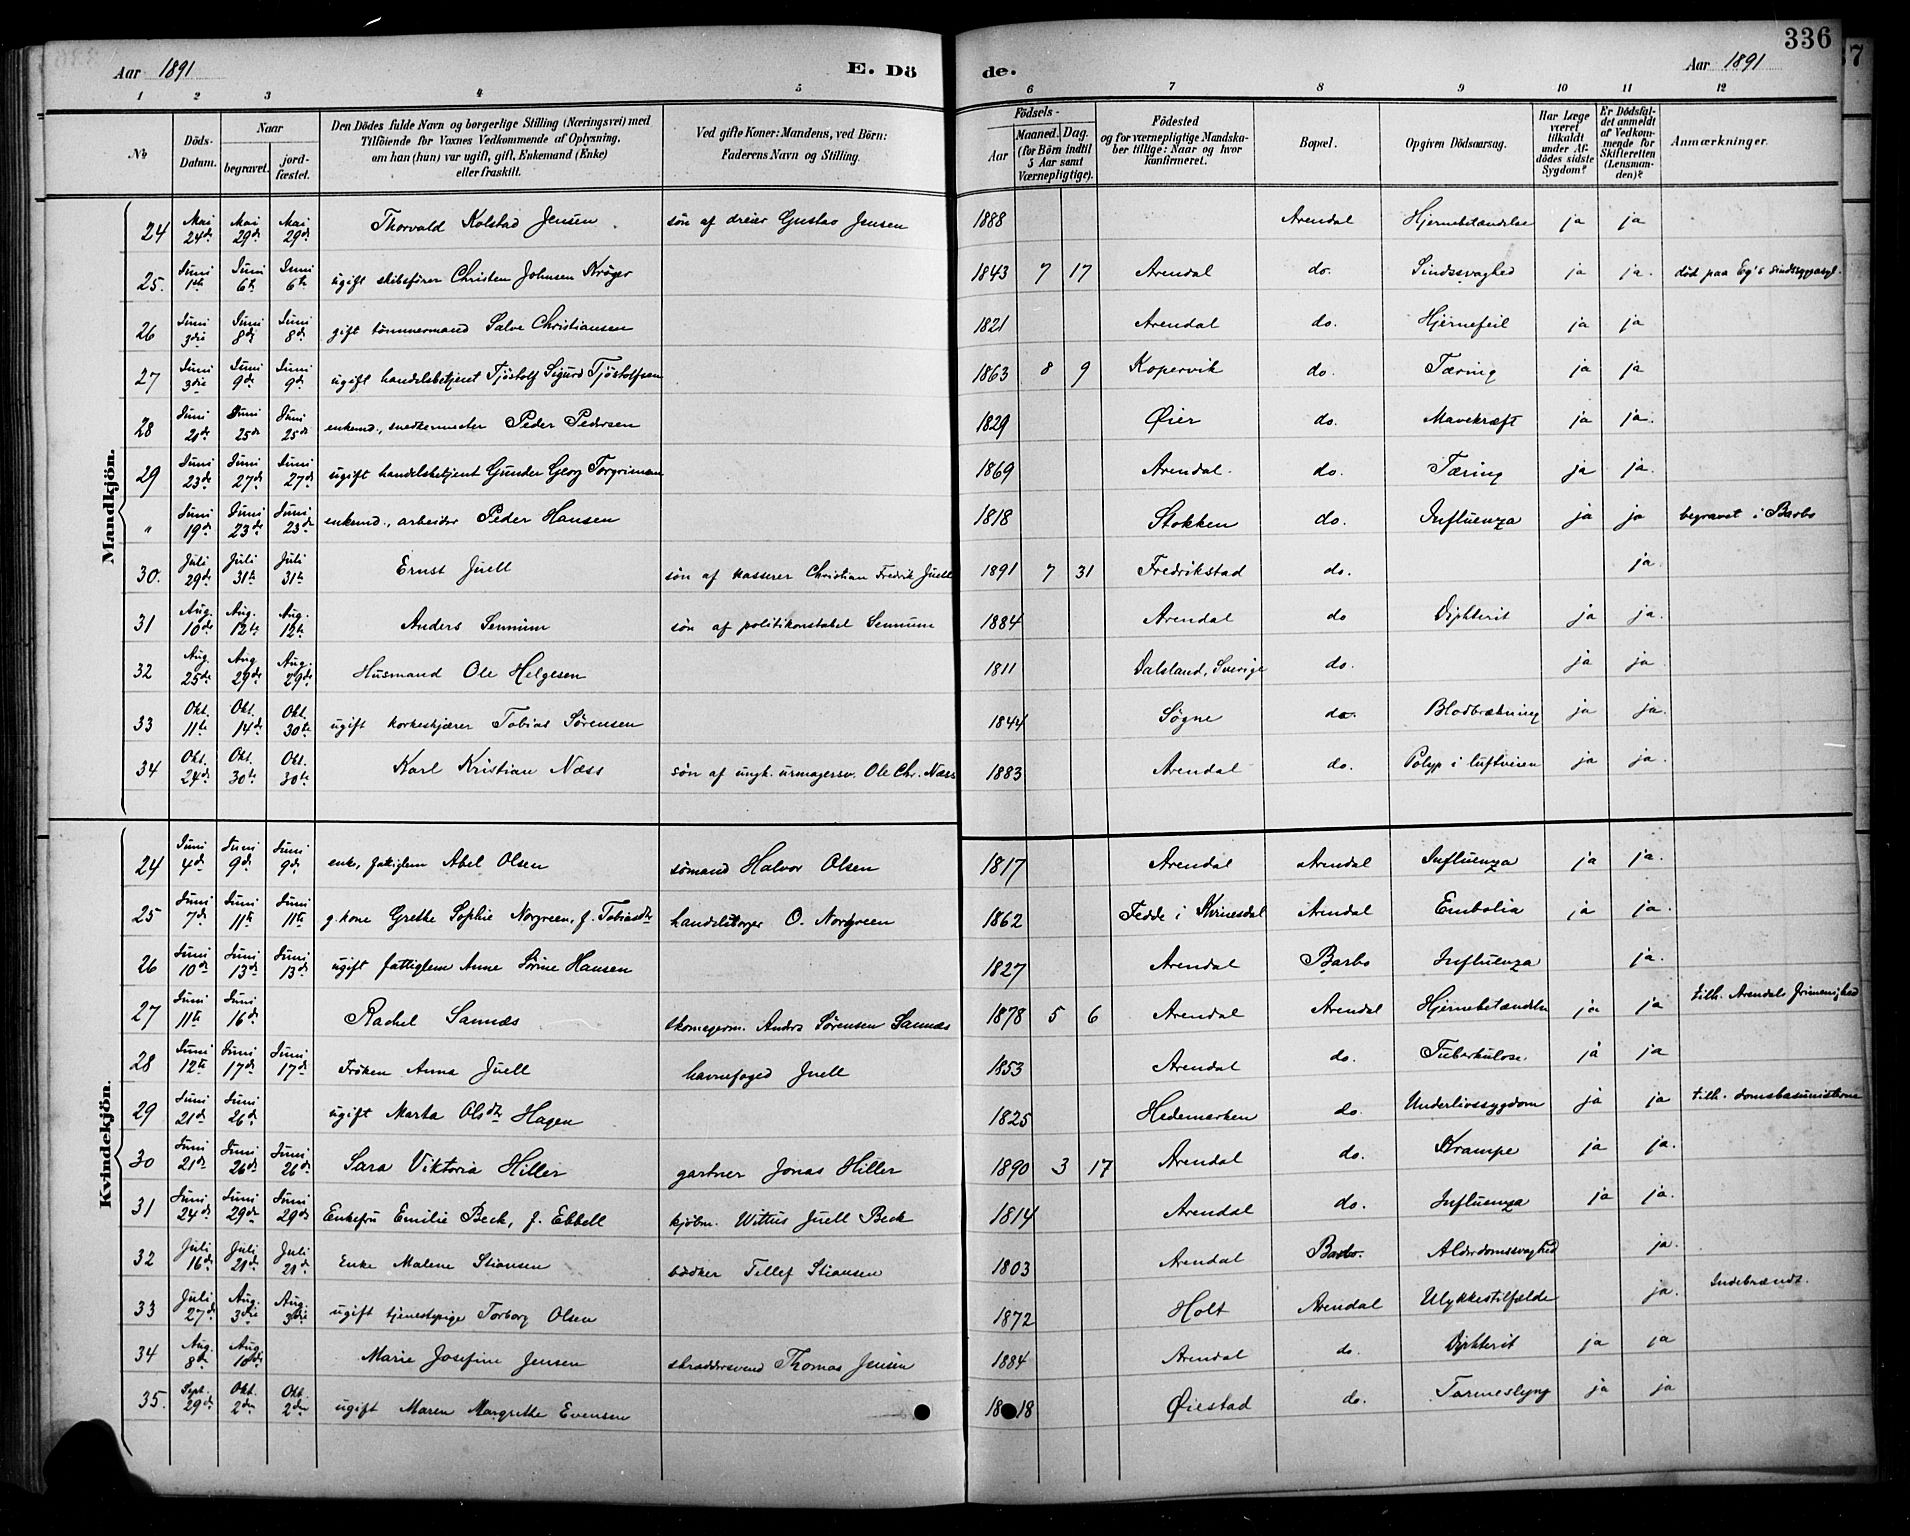 336
Aar 1891 E. Dö de. Aar 1891
1 2 3 4 5 6 7 8 9 10 11 12
No. Döds-Datum. Naar begravet. jordfæstet. Den Dödes fulde Navn og borgerlige Stilling (Næringsvei) med Tilföiende for Voxnes Vedkommende af Oplysning, om han (hun) var ugift, gift, Enkemand (Enke) eller fraskilt. Ved gifte Koner: Mandens, ved Börn: Faderens Navn og Stilling. Födsels- Aar Maaned. Dag. (for Börn indtil 5 Aar samt Værnepligtige). Födested og for værnepligtige Mandskaber tillige: Naar og hvor konfirmeret. Bopæl. Opgiven Dödsaarsag. Har Læge været tilkaldt under Afdödes sidste Sygdom? Er Dödsfaldet anmeldt af Vedkommende for Skifteretten (Lensmanden)? Anmærkninger.
Mandkjön.
24 Mai 24de Mai 29de Mai 29de Thorvald Kolstad Jensen søn af dreier Gustav Jensen 1888 Arendal Hjernebetændelse ja ja
25. Juni 1ste Juni 6te Juni 6te ugift skibsfører Christen Johnsen Krøger 1843 7 17 Arendal do. Sindssvaghed ja ja. død paa Eg's Sindssygeasyl.
26 Juni 3die Juni 8de Juni 8de gift tømmermand Salve Christiansen 1821 Arendal do. Hjernefeil ja ja
27 Juni 3die Juni 9de Juni 9de ugift handelsbetjent Tjøstolf Sigurd Tjøstolfsen 1863 8 9 Kopervik do. Tæring ja ja
28 Juni 21de Juni 25de Juni 25de enkemd., snedkermester Peder Pedersen 1829 Øier do. Mavekræft ja ja.
29 Juni 23de Juni 27de Juni 27de ugift handelsbetjent Gunder Georg Torgrimsen 1869 Arendal. do. Tæring ja ja.
" Juni 19de Juni 23de Juni 23de enkemd., arbeider Peder Hansen 1818 Stokken do. Influenza ja ja begravet i Barbo
30. Juli 29de Juli 31te Juli 31te Ernst Juell søn af kasserer Christian Fredrik Juell 1891 7 31 Fredrikstad do. ja.
31 Aug. 10de Aug. 12te Aug. 12te Anders Sennum søn af politikonstabel Sennum 1884 Arendal do Diphterit ja ja.
32 Aug. 25de Aug 29de Aug. 29de Husmand Ole Helgesen 1811 Dalsland, Sverige do. ja ja
33 Okt. 11te Okt. 14de Okt. 30te ugift korkeskjærer Tobias Sørensen 1844 Søgne do. Blodbrækning ja ja.
34 Okt. 24de Okt. 30te Okt. 30te Karl Kristian Næss søn af ungk. urmagersv. Ole Chr. Næss 1883 Arendal do. Polyp i luftveien ja ja.
Kvindekjön.
24 Juni 4de Juni 9de Juni 9de enk, fattiglem Abel Olsen sømand Halvor Olsen 1817 Arendal Arendal Influenza ja ja.
25 Juni 7de Juni 11te Juni 11te g. kone Grethe Sophie Norgreen, f. Tobiasdtr handelsborger O. Norgreen 1862 Fedde i Kvinesdal Arendal Embolia ja ja.
26 Juni 10de Juni 13de Juni 13de ugift fattiglem Anne Sørine Hansen 1827 Arendal Barbo Influenza ja.
27 Juni 11te Juni 16de Rachel Sannæs skomagerm. Anders Sørensen Sannæs 1878 5 6 Arendal Arendal Hjernebetændelse ja ja tilh. Arendals frimenighed
28 Juni 12te Juni 17de Juni 17de Frøken Anna Juell havnefoged Juell 1853 Arendal do. Tuberkulose. ja ja
29 Juni 21de Juni 26de ugift Marta Olsdtr Hagen 1825 Hedemarken do. Underlivssygdom ja ja tilh.
30 Juni 21de Juni 26de Juni 26de Sara Viktoria Hiller gartner Jonas Hiller 1890 3 17 Arendal do. Krampe ja ja.
31 Juni 24de Juni 29de Juni 29de Enkefru Emilie Beck, f. Ebbell kjøbm. Wittus Juell Beck 1814 Arendal do. Influenza ja ja.
32 Juli 16de Juli 21de Juli 21de Enke Malene Stiansen bødker Tellef Stiansen 1803 Arendal Barbo. Alderdomssvaghed ja.
33 Juli 27de Aug. 3die Aug. 3die ugift tjenestepige Torborg Olsen 1872 Holt Arendal Ulykkestilfælde ja. Indebrændt.
34 Aug. 8de Aug. 10de Marie Josefine Jensen skræddersvend Thomas Jensen 1884 Arendal do. Dyphterit ja ja
35. Sept. 29de Okt. 2den Okt. 2den ugift Maren Margrethe Evensen 1818 Øiestad do. Tarmeslyng ja ja